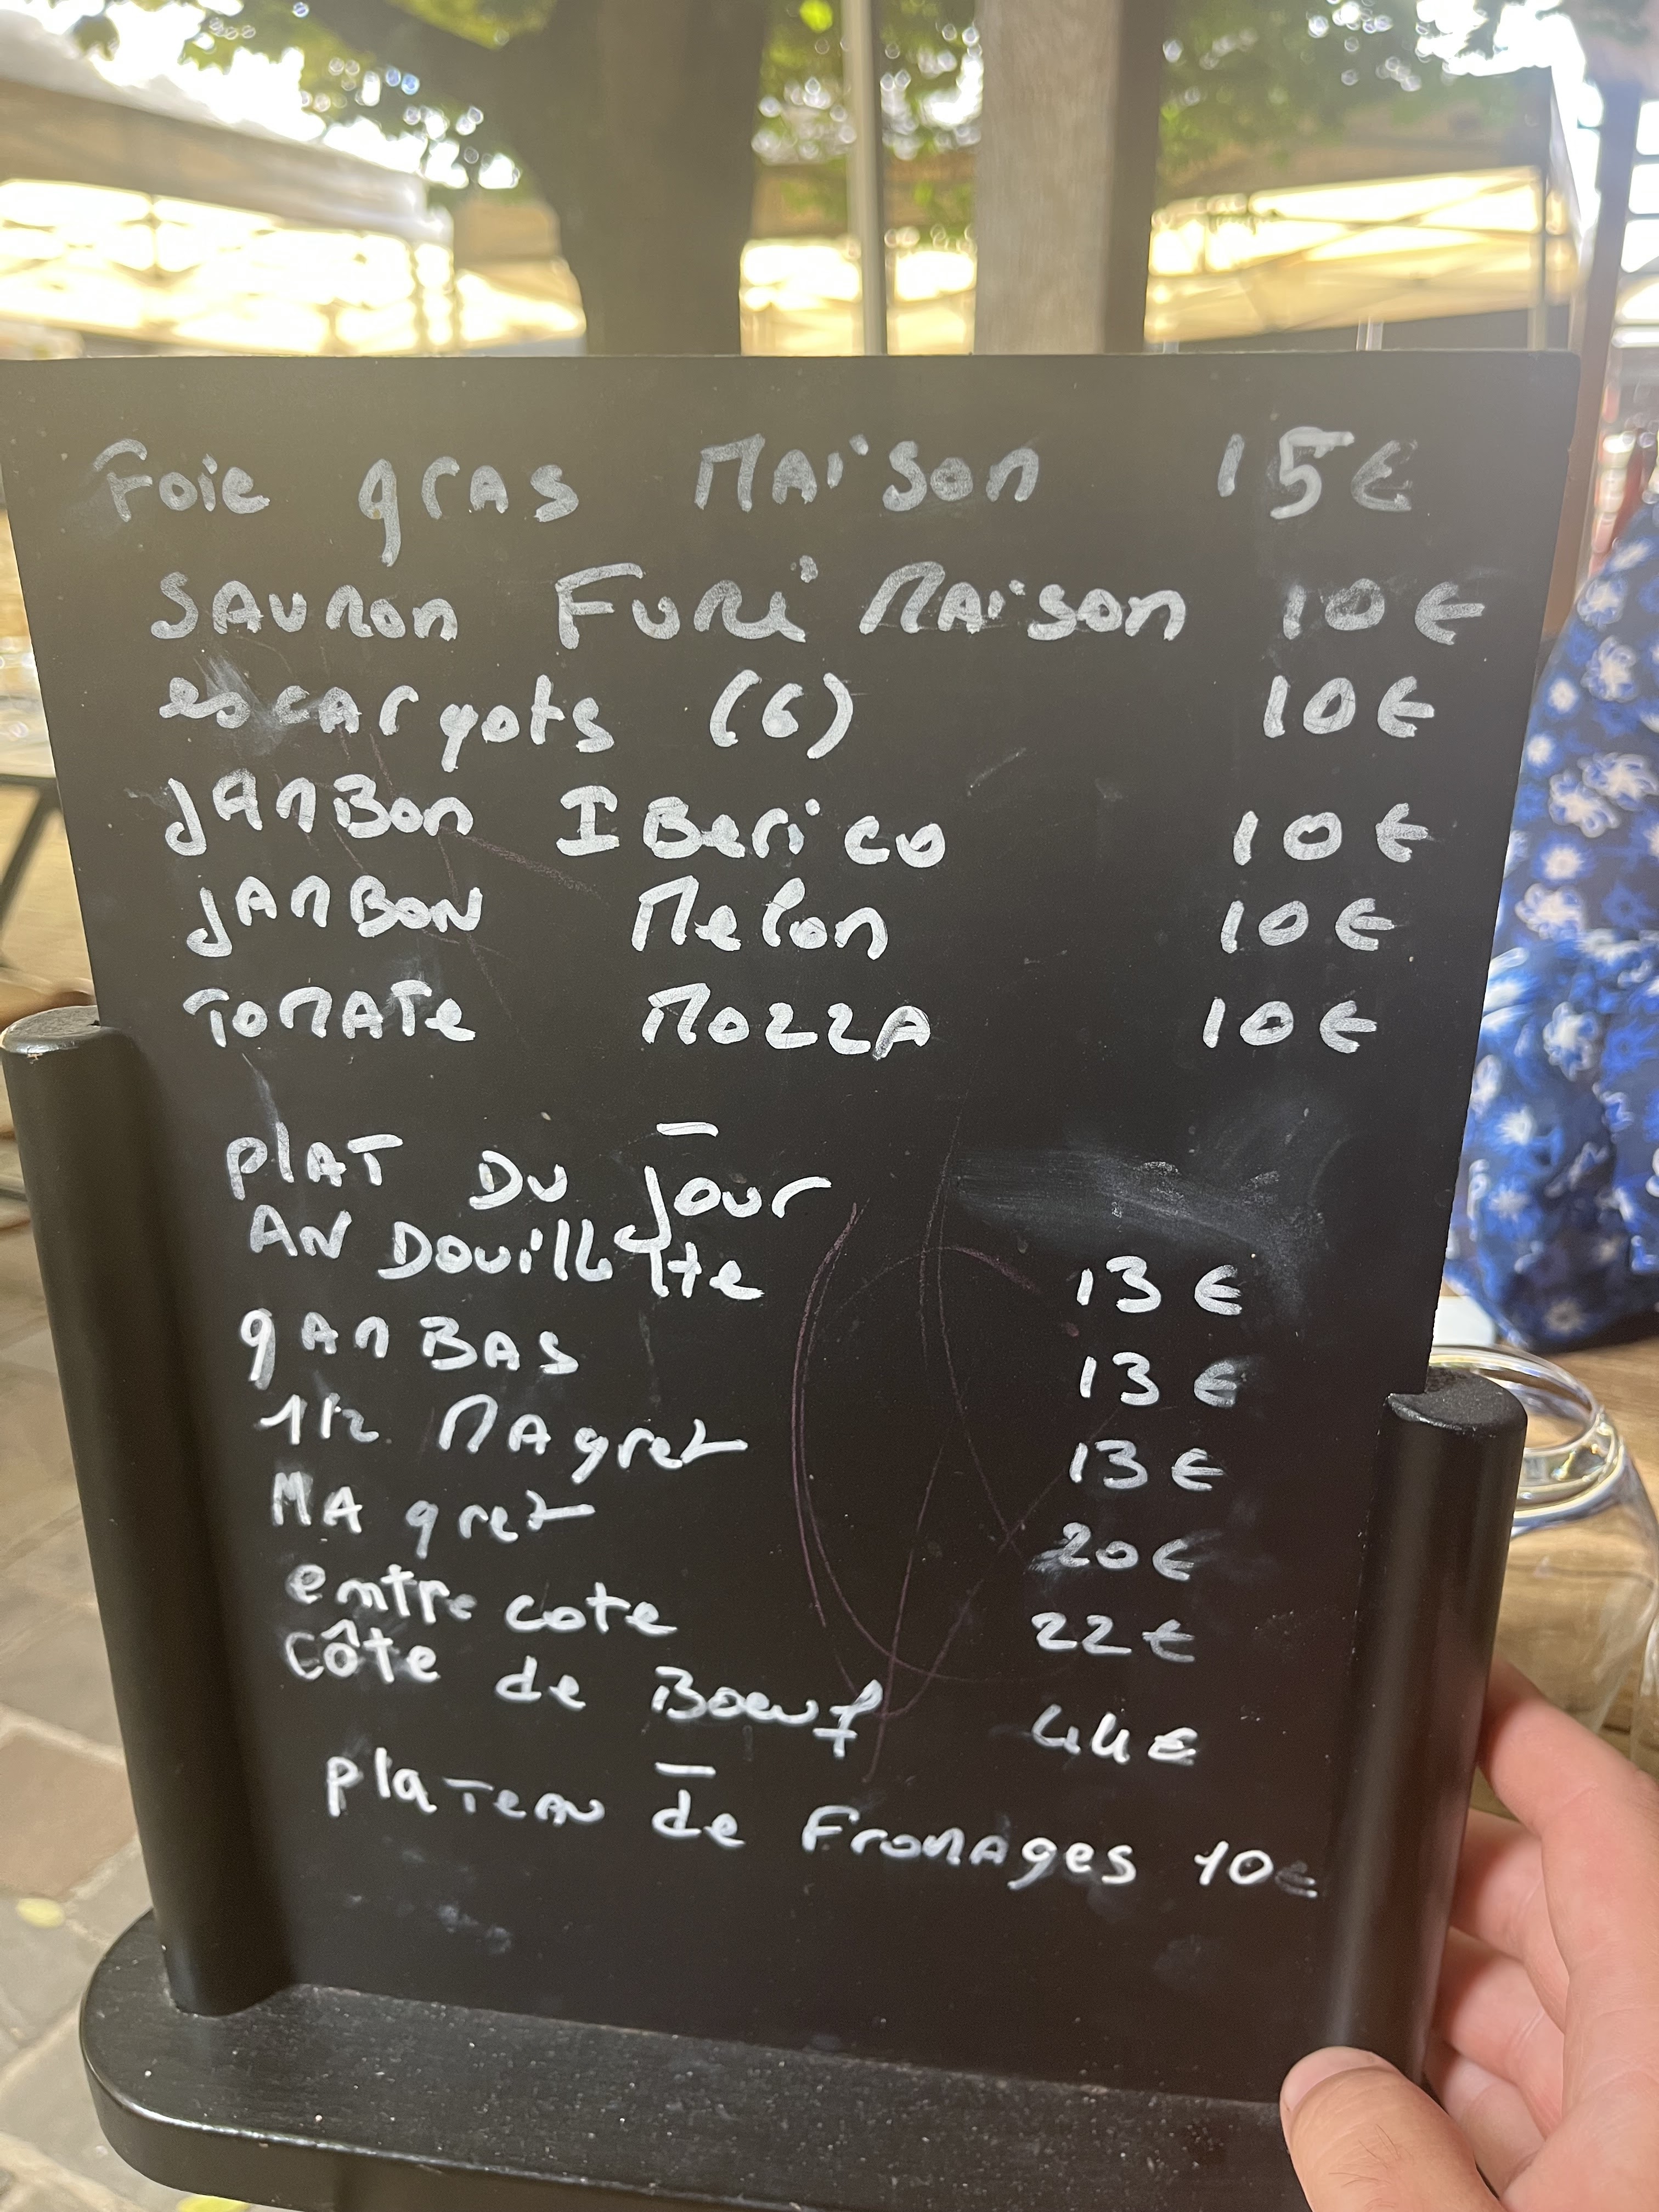 Foie gras Maison 15€
SAUMON FUMé MAISON 10€
escArgots (6) 10€
JAMBon IBerico 10€
JAMBON Melon 10€
TOMATe MOZZA 10€
—
PlAT DU Jour
ANDouillette 13€
gAMBAS 13€
1/2 MAgret 13€
MAgret 20€
entre cote 22€
Côte de Boeuf 44€
—
plaTeau de FroMAges 10€